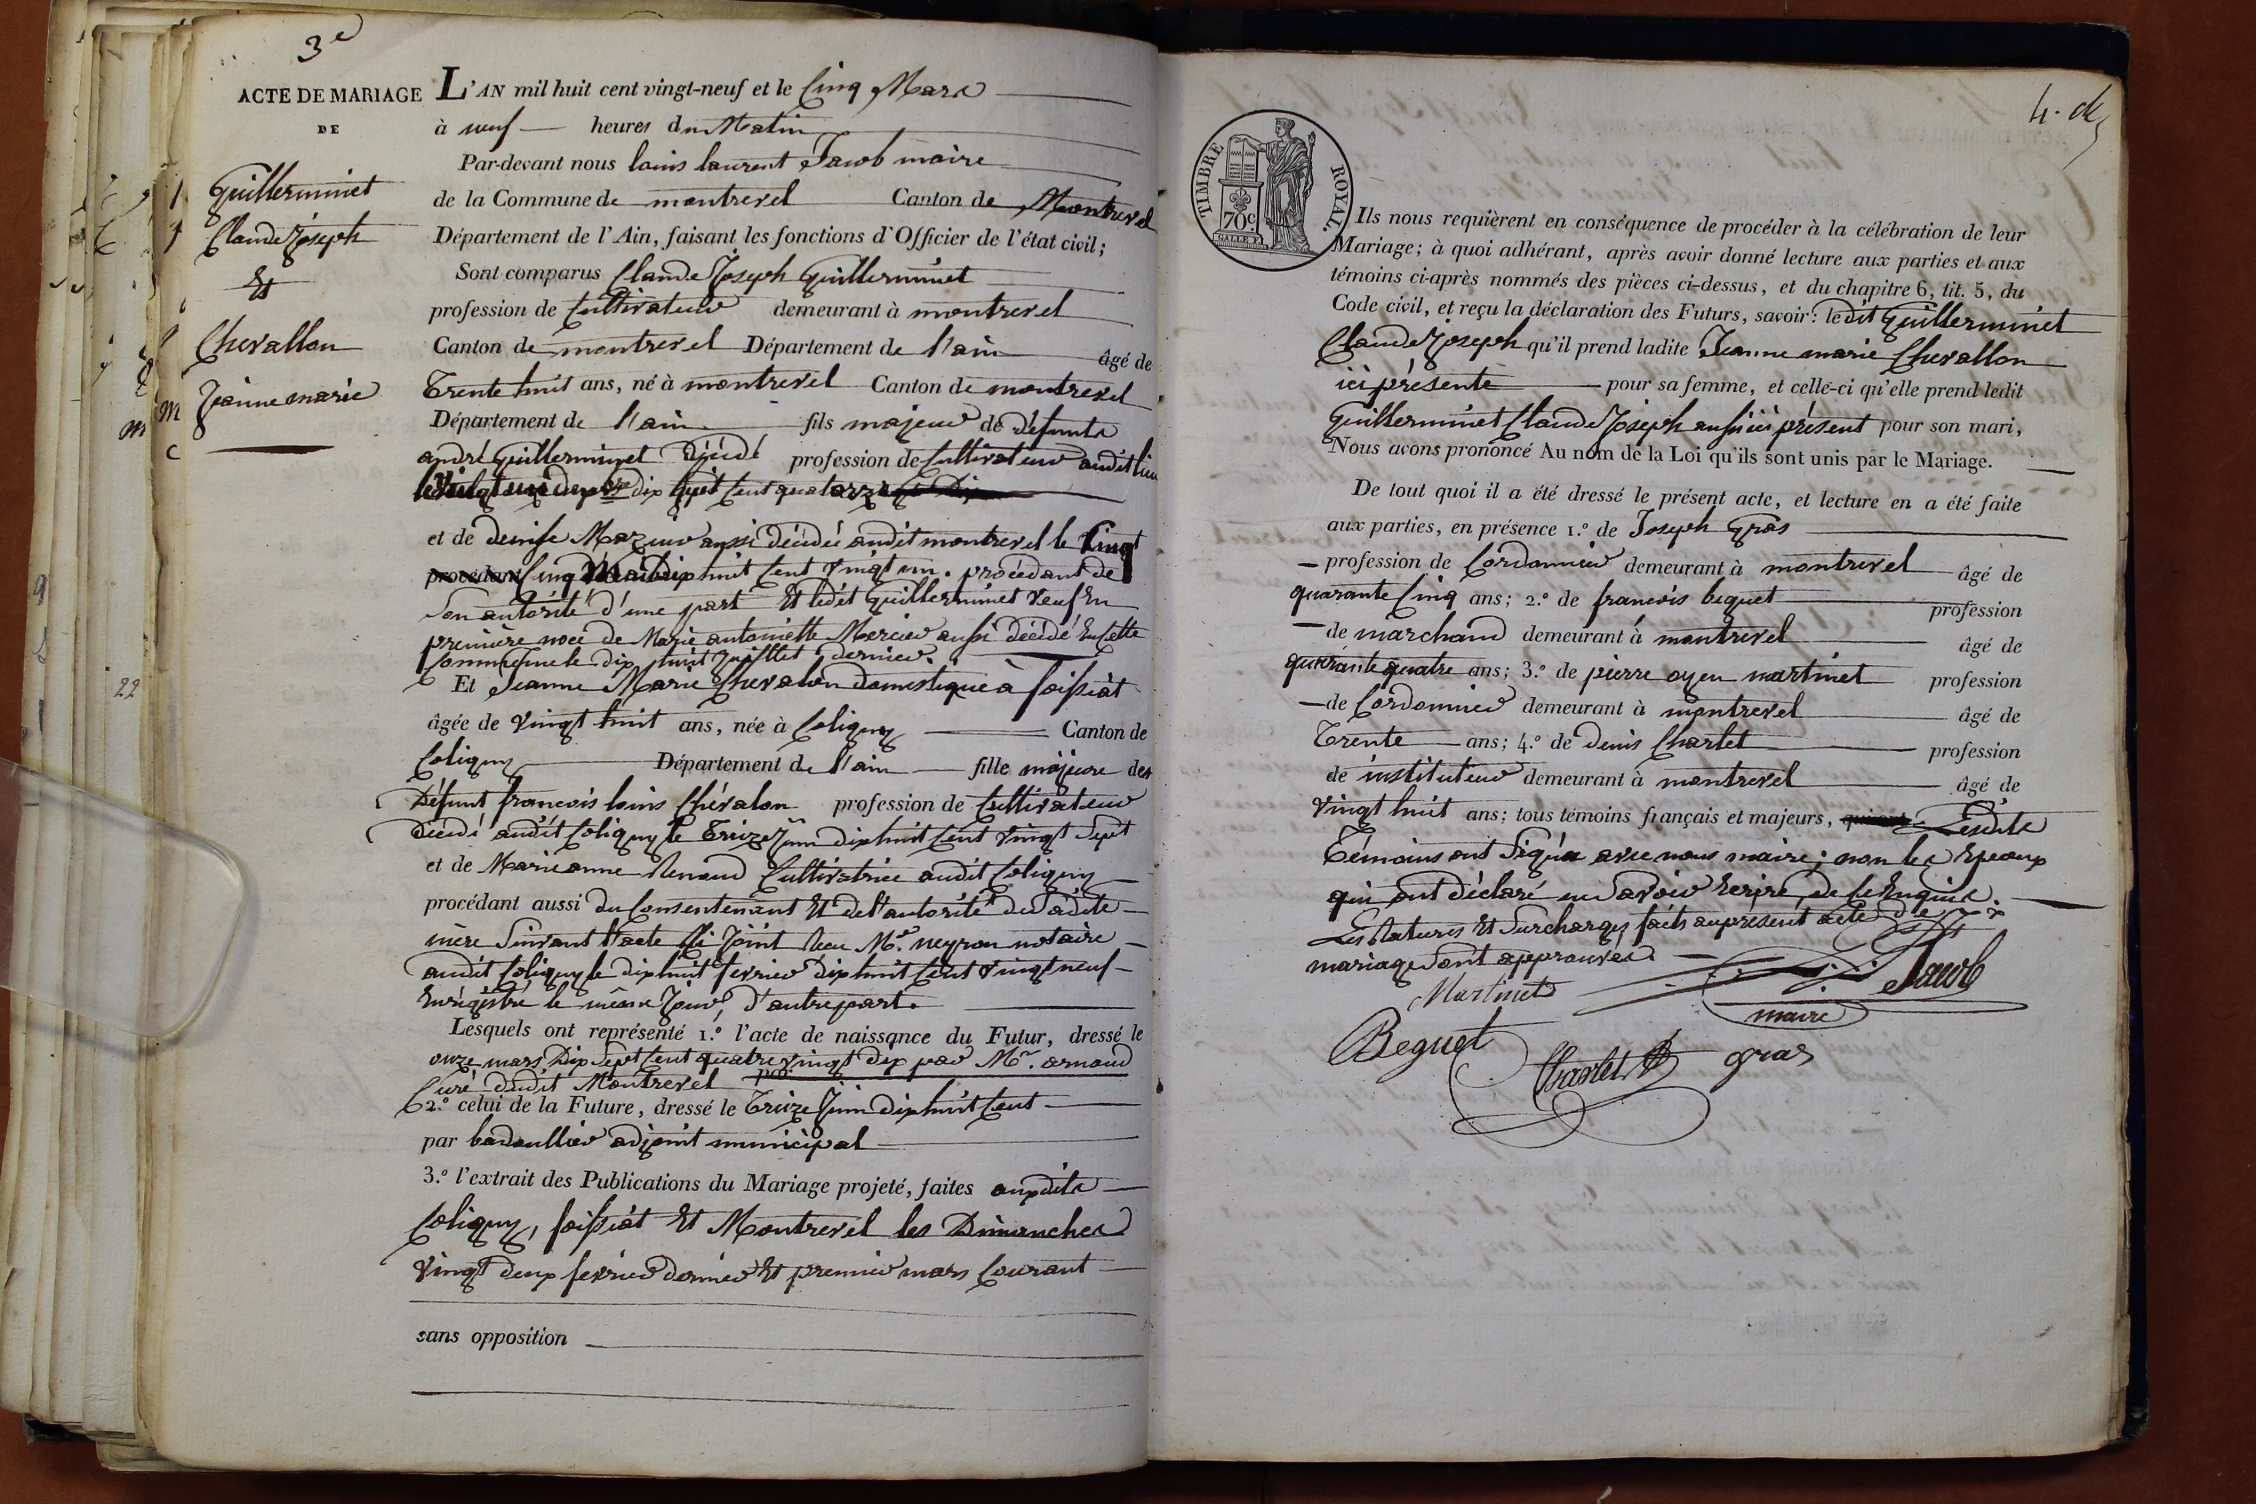 3e
ACTE DE MARIAGE
DE
Guillerminet
Claude Joseph
Et
Chevallon
Jeanne marie
L'AN mil huit cent vingt-neuf et le Cinq Mars
à neuf heures du Matin
Par-devant nous louis laurent Jacob maire
de la Commune de montrevel Canton de Montrevel
Département de l'Ain, faisant les fonctions d'Officier de l'état civil;
Sont comparus Claude Joseph Guillerminet
profession de Cultivateur demeurant à montrevel
Canton de montrevel Département de l'ain âgé de
Trente huit ans, né à montrevel Canton de montrevel
Département de l'ain fils majeur de défunts
andré Guillerminet Décédé profession de Cultivateur audit lieu
dix huit Cent quatorze
et de denise Mazuir aussi décédée audit montrevel le Cinq
procédant Cinq dix huit Cent vingt un. procédant de
Son autorité d'une part Et ledit Guillerminet veuf En
première noce de Marie antoinette Mercier aussi décédé En Cette
Commune le dix huit Juillet dernier.
Et Jeanne Marie Chevalon domestique à foissiat
âgée de vingt huit ans, née à Coligny Canton de
Coligny Département de l'ain fille majeure des
Défunt francois louis Chévalon profession de Cultivateur
Décédé audit Coligny le Treize Juin dix huit Cent vingt Sept
et de Marieanne Renaud Cultivatrice audit Coligny
procédant aussi du Consentement Et de l'autorité de sadite
mère Suivant l'acte Ci Joint Recu Me. neyron notaire
audit Coligny le dix huit fevrier dix huit Cent vingt neuf
Enrégistré le même Jour, d'autre part.
Lesquels ont représenté 1.º l'acte de naissance du Futur, dressé le
onze mars Dix Sept Cent quatre vingt dix par Mr. arnaud
Curé dudit Montrevel par
2.º celui de la Future, dressé le Treize Juin dix huit Cent
par badoullier adjoint municipal
3.º l'extrait des Publications du Mariage projeté, faites auxdits
Coligny, foissiat Et Montrevel les Dimanches
vingt deux fevrier dernier Et premier mars Courant
sans opposition
22
TIMBRE ROYAL.
70c
4.
Ils nous requièrent en conséquence de procéder à la célébration de leur
Mariage; à quoi adhérant, après avoir donné lecture aux parties et aux
témoins ci-après nommés des pièces ci-dessus, et du chapitre 6, tit. 5, du
Code civil, et reçu la déclaration des Futurs, savoir: ledit Guillerminet
Claude Joseph qu'il prend ladite Jeanne marie Chevallon
ici présente pour sa femme, et celle-ci qu'elle prend ledit
Guillerminet Claude Joseph aussi ici présent pour son mari,
Nous avons prononcé Au nom de la Loi qu'ils sont unis par le Mariage.
De tout quoi il a été dressé le présent acte, et lecture en a été faite
aux parties, en présence 1.º de Joseph Gros
profession de Cordonnier demeurant à montrevel âgé de
quarante Cinq ans; 2.º de francois beguet profession
de marchand demeurant à montrevel âgé de
quarante quatre ans; 3.º de pierre oyen martinet profession
de Cordonnier demeurant à montrevel âgé de
Trente ans; 4.º de denis Charlet profession
de instituteur demeurant à montrevel âgé de
vingt huit ans; tous témoins français et majeurs, Lesdits
Témoins ont Signés avec nous maire; non les Epoux
qui ont déclaré ne Savoir Ecrire, de ce Enquis.
Les Ratures Et Surcharges faits au present acte de
mariage Sont approuvés
Martinet
Jacob
maire
Beguet
Charlet
gros